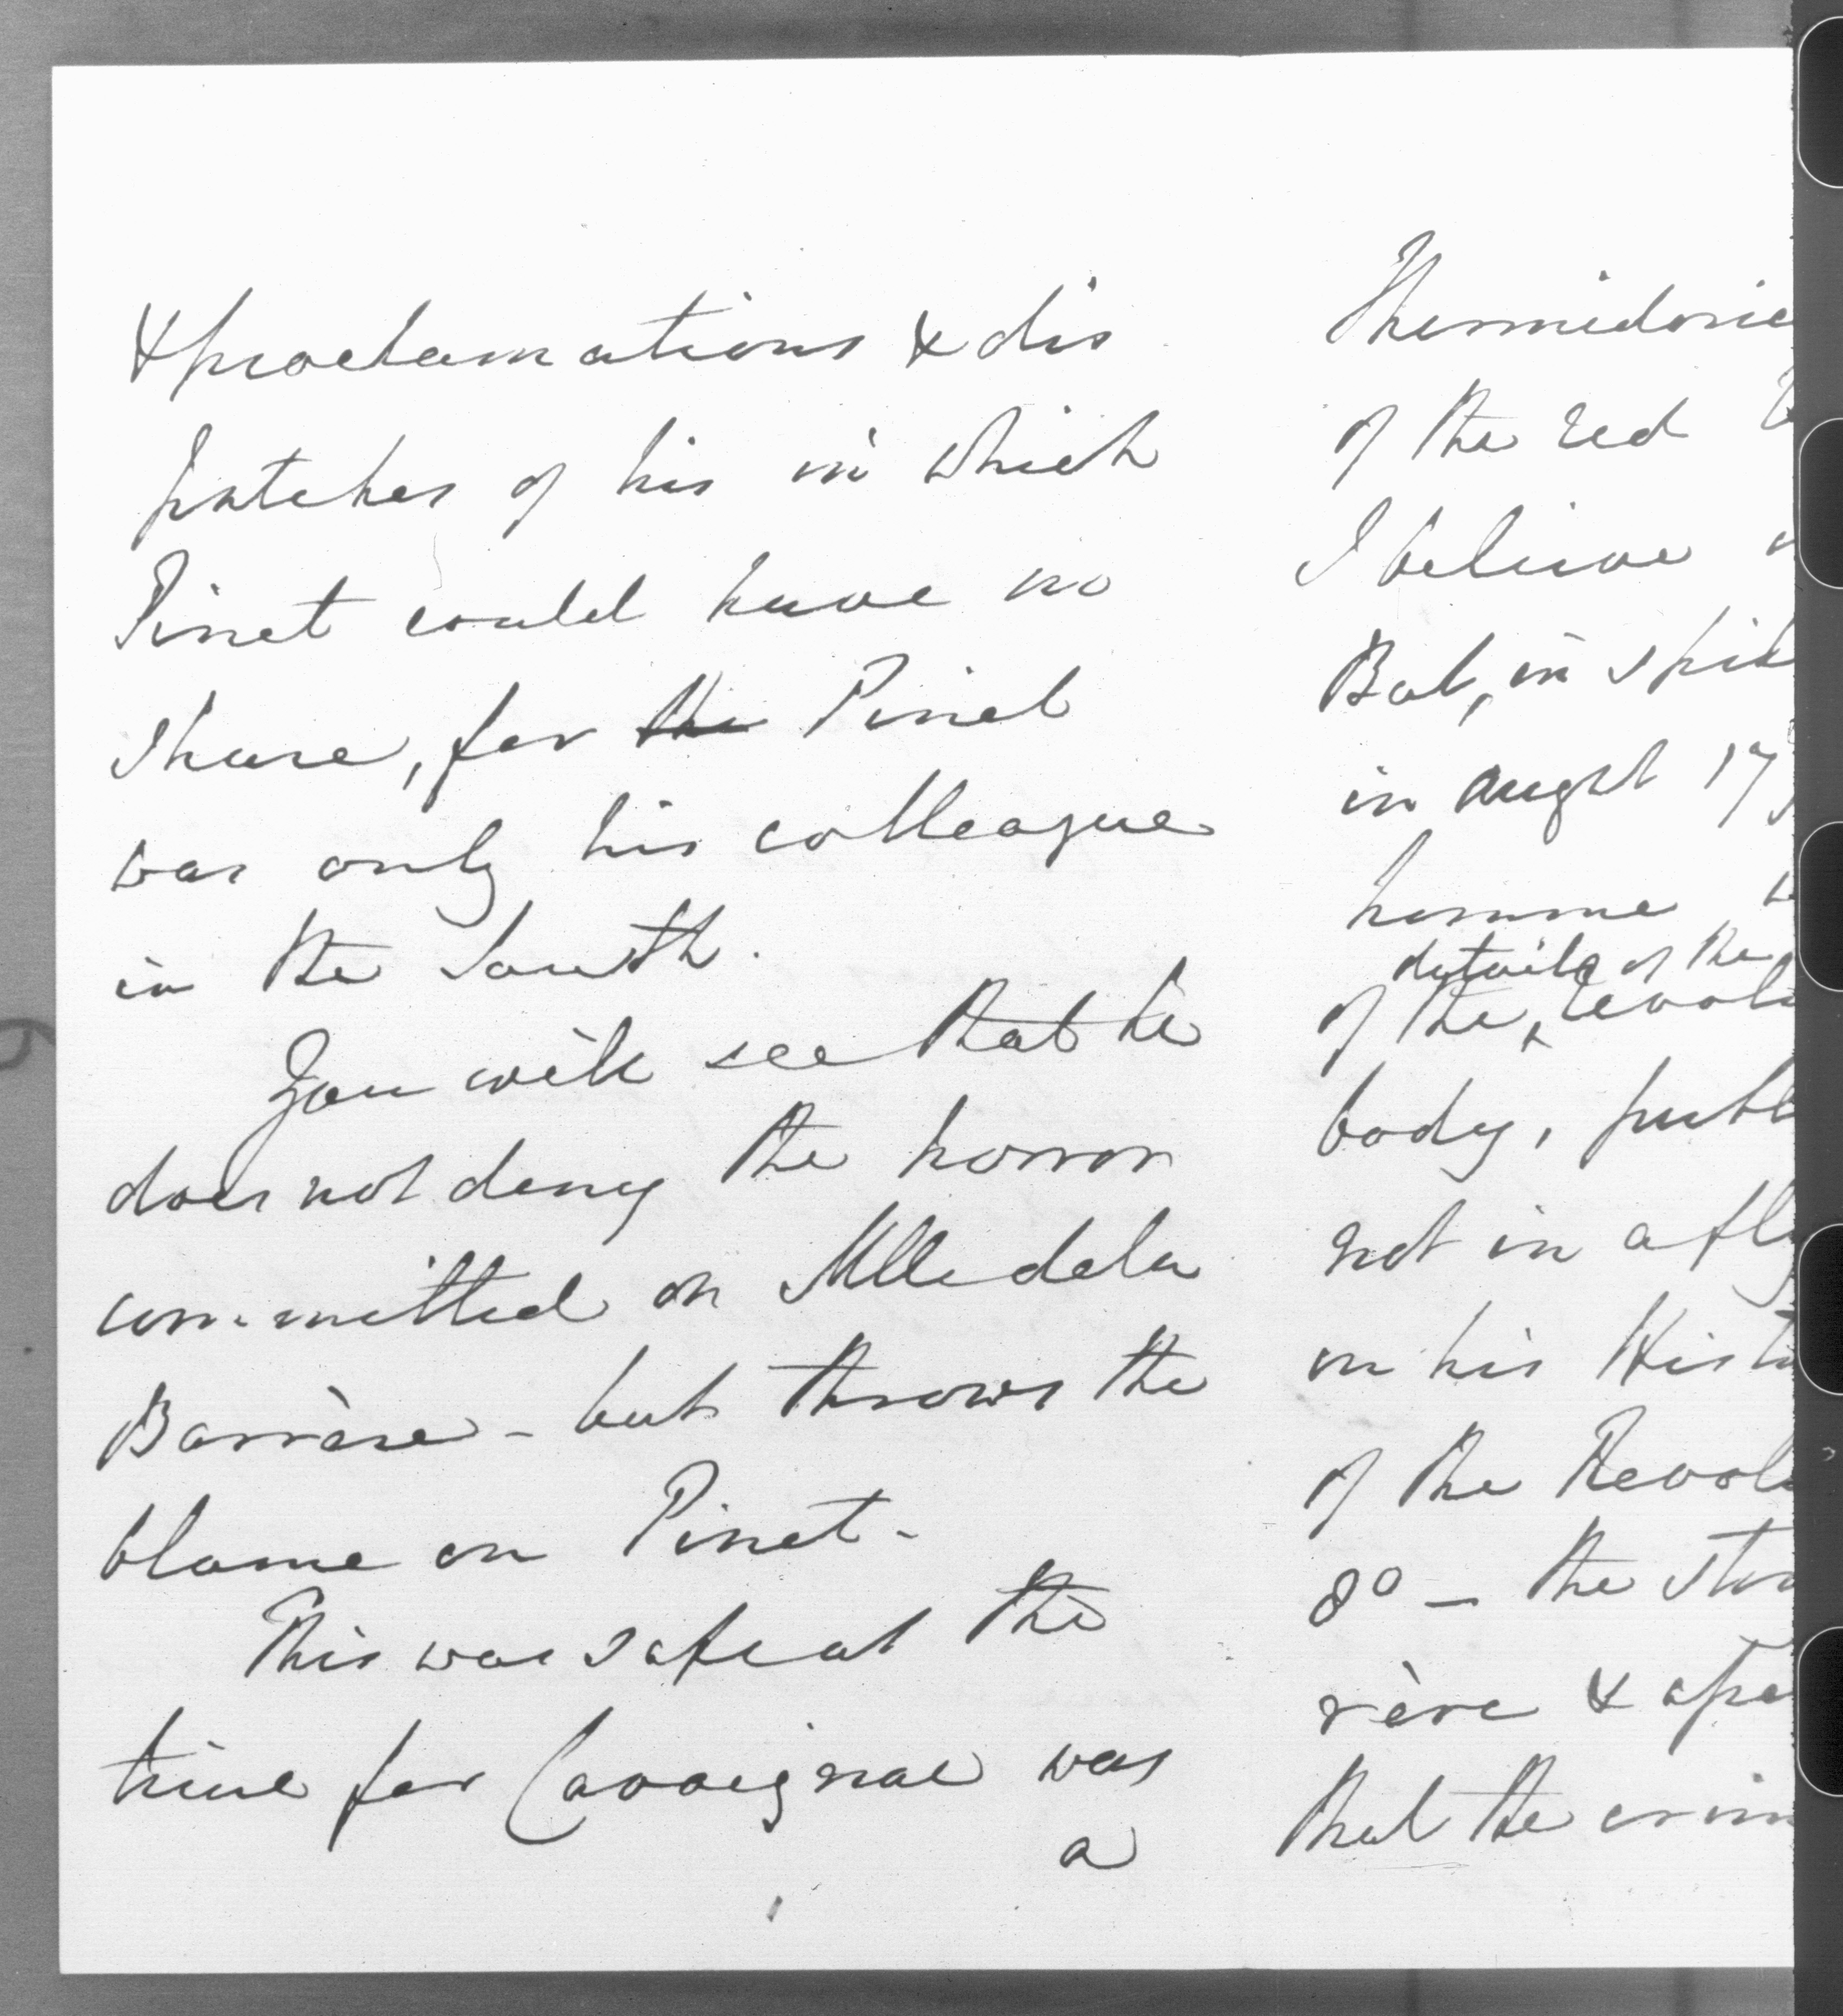 & proclamations & dis
patches of his in which
Pinet could have no
share, for the Pinet
was only his colleague
in the South.
You will see that he
does not deny the horror
committed on Mlle de la
Barrère - but throws the
blame on Pinet -
This was safe at the
time for Cavaignac was
a
Thermidorie
of the red
I believe
But, in spit
in augst 17
homme
details of the
of the revolu
body, publ
not in a fly
in his Histo
of the Revolu
8º - the stor
rère & spe
that the crim